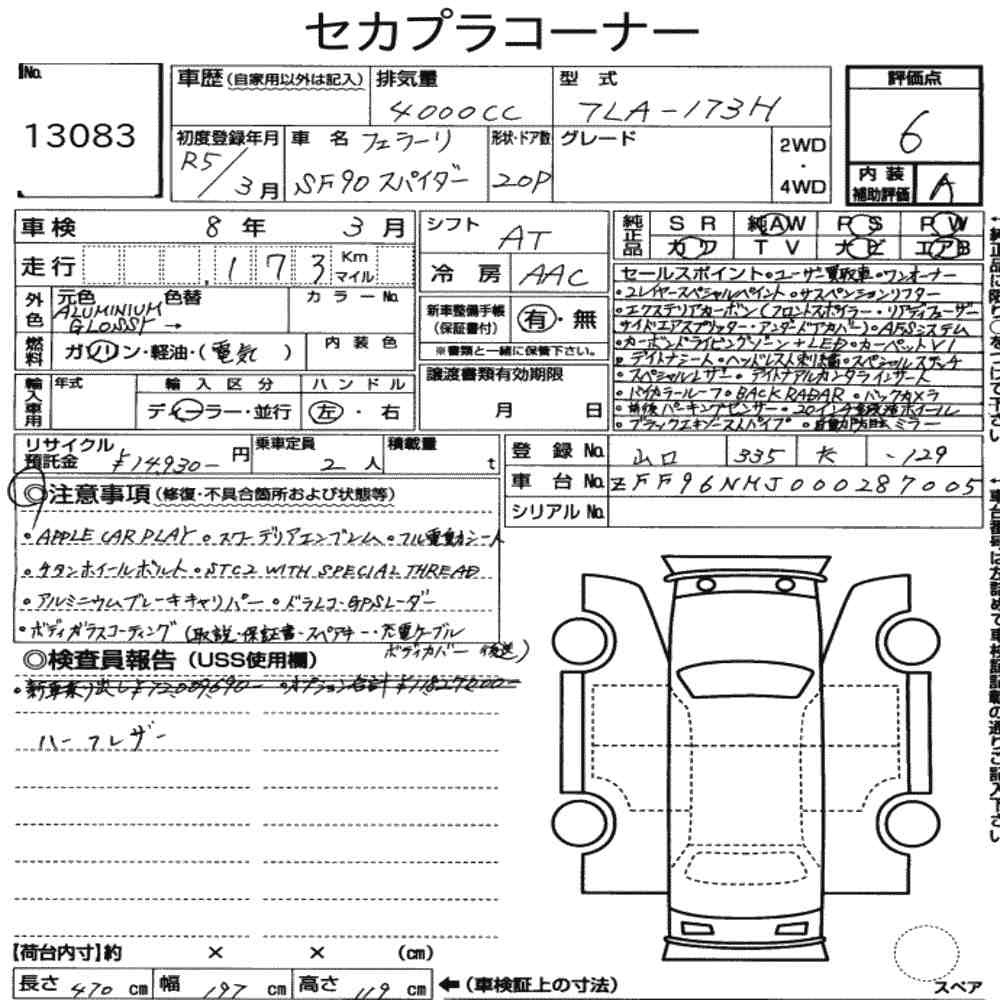 セカプラコーナー
No. 13083
車歴(自家用以外は記入) 排気量 4000CC 型式 7LA-173H
初度登録年月 R5/3月 車名 フェラーリ SF90 スパイダー 形状・ドア数 2OP グレード 2WD・4WD
評価点 6
内装補助評価 A
車検 8年 3月
走行 173 Km マイル
外色 元色 ALUMINIUM GLOSSY → 色替 カラーNo.
燃料 ガソリン・軽油・(電気) 内装色
輸入車用 年式 輸入区分 ディーラー・並行 ハンドル 左・右
シフト AT
冷房 AAC
新車整備手帳(保証書付) 有・無
※書類と一緒に保管下さい。
譲渡書類有効期限 月 日
純正品 SR 純AW PS PW
カワ TV ナビ エアB
セールスポイント・ユーザー買取車・ワンオーナー
・2レイヤースペシャルペイント・サスペンションリフター
・エクステリアカーボン(フロントスポイラー・リアディフューザー
サイドエアスプリッター・アンダードアカバー)・AFSシステム
・カーボンドライビングゾーン+LED・カーペットV1
・デイトナシート・ヘッドレスト刺繍・スペシャルステッチ
・スペシャルレザー・デイトナアルカンタラインサート
・バイカラールーフ・BACK RADAR・バックカメラ
・前後パーキングセンサー・20インチ鍛造ホイール
・ブラックエキゾーストパイプ・自動防眩ミラー
リサイクル預託金 ¥14,930- 円 乗車定員 2人 積載量 t
登録No. 山口 335 た -129
車台No. ZFF96NMJ000287005
シリアルNo.
◎注意事項(修復・不具合箇所および状態等)
・APPLE CAR PLAY・スクーデリアエンブレム・フル電動シート
・チタンホイールボルト・STC2 WITH SPECIAL THREAD
・アルミニウムブレーキキャリパー・ドラレコ・GPSレーダー
・ボディガラスコーティング(取説・保証書・スペアキー・充電ケーブル
ボディカバー 後送)
◎検査員報告(USS使用欄)
・新車乗り出し¥72,009,690-・オプション合計¥11,827,000-
ハーフレザー
【荷台内寸】約 × × (cm)
長さ 470 cm 幅 197 cm 高さ 119 cm ←(車検証上の寸法)
スペア